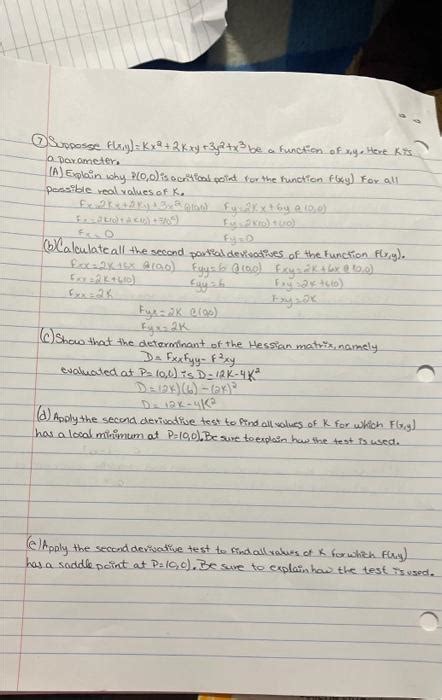 ⑦ Supposse F(x,y)=Kx²+2Kxy+3y²+x³ be a function of x,y. Here K is
a parameter.
(A) Explain why P(0,0) is a critical point for the function F(x,y) For all
possible real values of K.
Fx=2Kx+2Ky+3x² @(0,0) Fy=2Kx+6y @(0,0)
Fx=2K(0)+2K(0)+3(0²) Fy=2K(0)+6(0)
Fx=0 Fy=0
(b) Calculate all the second partial derivatives of the Function F(x,y).
Fxx=2K+6x @(0,0) Fyy=6 @(0,0) Fxy=2K+6x @(0,0)
Fxx=2K+6(0) Fyy=6 Fxy=2K+6(0)
Fxx=2K Fxy=2K
Fyx=2K @(0,0)
Fyx=2K
(C) Show that the determinant of the Hessian matrix, namely
D=FxxFyy-F²xy
evaluated at P=(0,0) is D=12K-4K²
D=(2K)(6)-(2K)²
D=12K-4K²
(d) Apply the second derivative test to find all values of K for which F(x,y)
has a local minimum at P=(0,0). Be sure to explain how the test is used.
(e) Apply the second derivative test to find all values of K for which F(x,y)
has a saddle point at P=(0,0). Be sure to explain how the test is used.